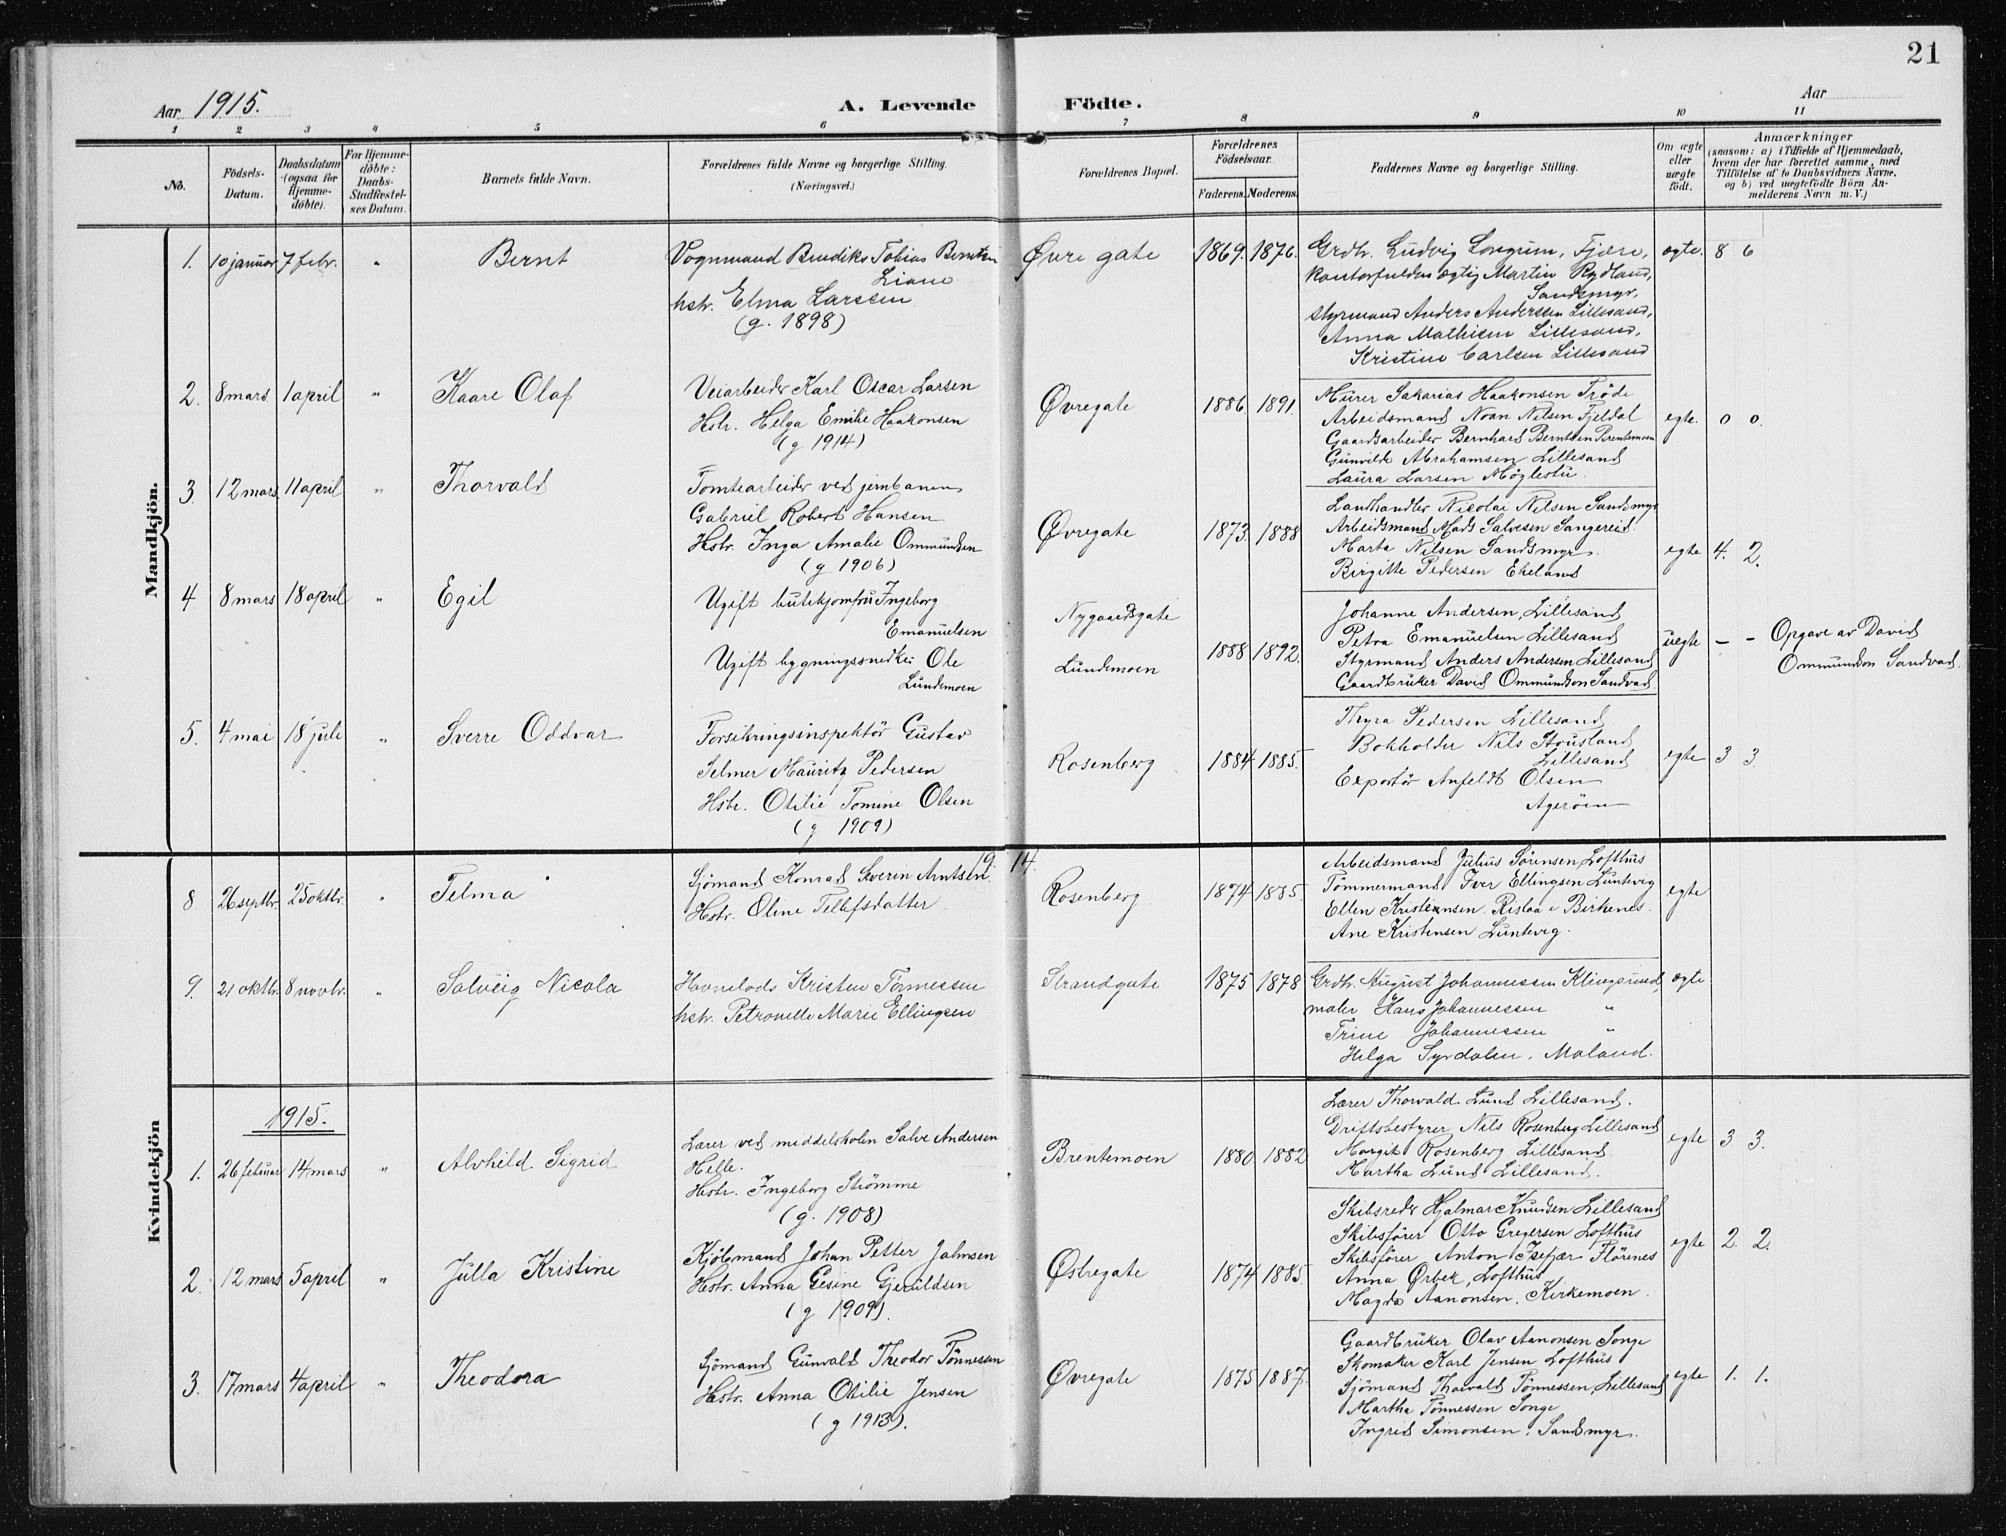 21
Aar 1915. A. Levende Födte. Aar
1 2 3 4 5 6 7 8 9 10 11
No.
Födsels-Datum.
Daabsdatum (ogsaa for Hjemmedöbte).
For Hjemmedöbte: Daabs-Stadfæstelses Datum.
Barnets fulde Navn.
Forældrenes fulde Navne og borgerlige Stilling.
(Næringsvei.)
Forældrenes Bopæl.
Forældrenes Födselsaar.
Faderens. Moderens.
Faddernes Navne og borgerlige Stilling.
Om ægte eller uægte födt.
Anmærkninger
(saasom: a) i Tilfælde af Hjemmedaab,
hvem der har forrettet samme, med
Tilföielse af to Daabsvidners Navne,
og b) ved uægtefödte Börn An-
melderens Navn m. V.)
Mandkjön.
1. 10 januar 7 febr. " Bernt
Vognmand Bendiks Tobias Berntsen
Liane
hstr. Elma Larssen
(g. 1898)
Øvre gate 1869. 1876.
Grdbr. Ludvig Longum, Fjære,
Martin Rydland,
Sandsmyr,
styrmand Anders Andersen Lillesand,
Anna Mathisen Lillesand,
Kristine Carlsen Lillesand
ægte. 8 6
2. 8 mars 1 april " Kaare Olaf
Veiarbeider Karl Oscar Larsen
Hstr. Helga Emilie Haakonsen
(g 1914)
Øvregate 1886. 1891.
Murer Sakarias Haakonsen Tröde
Arbeidsmand Noan Nilsen Fjeldal
Gaardsarbeider Bernhard Berntsen Brentemoen
Gunvilde Abrahamsen Lillesand
Laura Larsen Møglestu.
egte. 0 0.
3. 12 mars 11 april " Thorvald
Tomtearbeider ved jernbanen
Gabriel Robert Hansen
Hstr. Inga Amalie Ommundsen
(g 1906)
Øvregate 1873. 1888
Landhandler Nicolai Nilsen Sandsmyr
Arbeidsmand Mads Salvesen Sangereid
Marta Nilsen Sandsmyr.
Birgitte Pedersen Ekeland
egte 4. 2.
4 8 mars 18 april " Egil
Ugift butikjomfru Ingeborg
Emanuelsen
Ugift bygningssnedker Ole
Lundemoen
Nygaardsgate
Lundemoen
1888 1892.
Johanne Andersen, Lillesand
Petra Emanuelsen Lillesand
Styrmand Anders Andersen Lillesand
Gaardbruker David Ommundson Sandvad
uegte – –
Opgave av David
Ommundson Sandvad.
5. 4 mai 18 juli " Sverre Oddvar
Forsikringsinspektör Gustav
Selmer Mauritz Pedersen
Hstr. Otilie Tomine Olsen
(g 1909)
Rosenberg 1884 1885.
Thyra Pedersen Lillesand
Bokholder Nils Stousland
Lillesand
Exportör Anfeldt Olsen
Agerøen
egte 3 3.
Kvindekjön
1914.
8 26 septbr. 25 oktbr. " Telma
Sjömand Konrad Severin Arntsen
Hstr. Oline Tellefsdatter
Rosenberg. 1874 1885.
Arbeidsmand Julius Sörensen, Lofthus
Tömmermand Iver Ellingsen Luntevig
Ellen Kristensen. Rislaa i Birkenes.
Ane Kristensen Luntevig.
egte
9. 21 oktbr. 8 novbr. " Solveig Nicola
Havnelods Kristen Tønnessen
hstr. Petronelle Marie Ellingsen
Strandgate 1875 1878
Grdbr. August Johannessen Klingsund,
maler Hans Johannessen "
Trine Johannessen "
Helga Syrdalen, Moland.
ægte
1915.
1. 26 februar 14 mars " Alvhild Sigrid
Lærer ved middelskolen Salve Andersen
Helle.
Hstr. Ingeborg Strömme
(g. 1908)
Brentemoen 1880 1882
Lærer Thorvald Lund Lillesand.
Driftsbestyrer Nils Rosenberg Lillesand
Margit Rosenberg Lillesand.
Martha Lund Lillesand.
egte 3. 3.
2. 12 mars 5 april " Julla Kristine
Kjöbmand Johan Petter Jahnsen
Hstr. Anna Gesine Gjeruldsen
(g 1909).
Østregate 1874 1885.
Skibsreder Hjalmar Knudsen Lillesand
Skibsfører Otto Gregersen Lofthus
Skibsfører Anton Isefjær Flörenes
Anna Ørbek, Lofthus
Magda Aanonsen, Kirkemoen.
egte 2. 2.
3. 17 mars 4 april " Theodora
Sjömand Gunvald Theodor Tönnessen
Hstr. Anna Otilie Jensen
(g 1913).
Øvregate 1875 1887.
Gaardbruker Olav Aanonsen Songe
Skomaker Karl Jensen Lofthus
Sjömand Thorvald Tönnessen, Lillesand
Martha Tönnessen Songe
Ingrid Simonsen, Sandsmyr.
egte 1. 1.